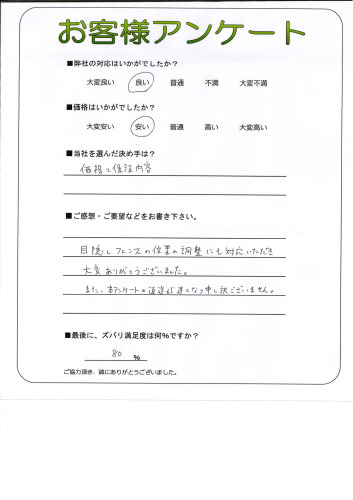 お客様アンケート
■弊社の対応はいかがでしたか？
大変良い 良い 普通 不満 大変不満
■価格はいかがでしたか？
大変安い 安い 普通 高い 大変高い
■当社を選んだ決め手は？
価格と保証内容
■ご感想・ご要望などをお書き下さい。
目隠しフェンスの位置の調整にも対応いただき
大変ありがとうございました。
また、本アンケートの返送が遅くなって申し訳ございません。
■最後に、ズバリ満足度は何%ですか？
80 %
ご協力頂き、誠にありがとうございました。